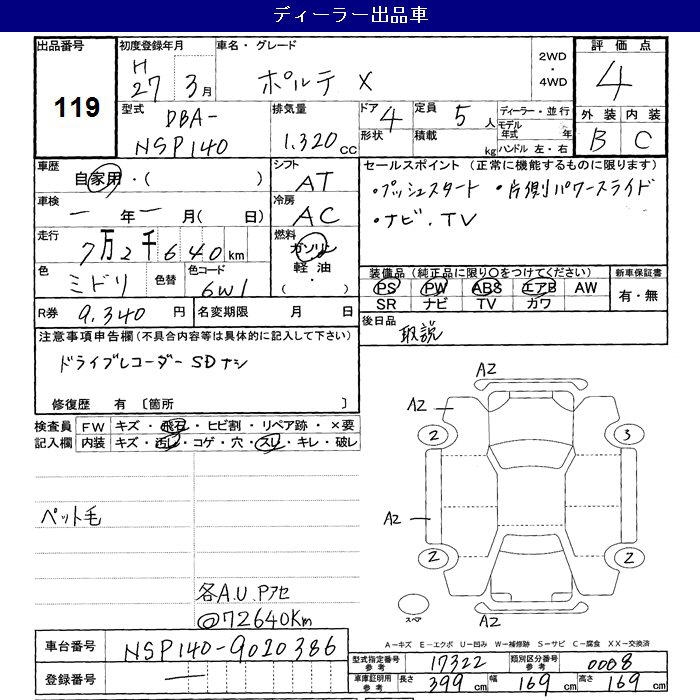 ディーラー出品車
出品番号 119
初度登録年月 H27年3月
車名・グレード ポルテ X
2WD・4WD
評価点 4
外装 B 内装 C
型式 DBA-NSP140
排気量 1.320cc
ドア 4 形状
定員 5人 積載 kg
ディーラー・並行
モデル年式 年
ハンドル 左・右
車歴 自家用・( )
シフト AT
セールスポイント (正常に機能するものに限ります)
・プッシュスタート ・片側パワースライド
・ナビ.TV
車検 ー年ー月(日)
冷房 AC
走行 7万2千640km
燃料 ガソリン 軽油・( )
色 ミドリ 色替 色コード 6W1
装備品 (純正品に限り○をつけてください) 新車保証書
PS PW ABS エアB AW 有・無
SR ナビ TV カワ
R券 9.340円 名変期限 月 日
後日品 取説
注意事項申告欄(不具合内容等は具体的に記入して下さい)
ドライブレコーダーSDナシ
修復歴 有〔箇所 〕
検査員記入欄 FW キズ・飛石・ヒビ割・リペア跡・×要
内装 キズ・汚レ・コゲ・穴・スレ・キレ・破レ
ペット毛
各A.U.Pアセ
@72640Km
A2
A2
2 3
A2
2 2
スペア
A2
A-キズ E-エクボ U-凹み W-補修跡 S-サビ C-腐食 XX-交換済
車台番号 NSP140-9020386
登録番号 ー
型式指定番号 参考 17322 類別区分番号 参考 0008
車庫証明用 参考 長さ 399cm 幅 169cm 高さ 169cm